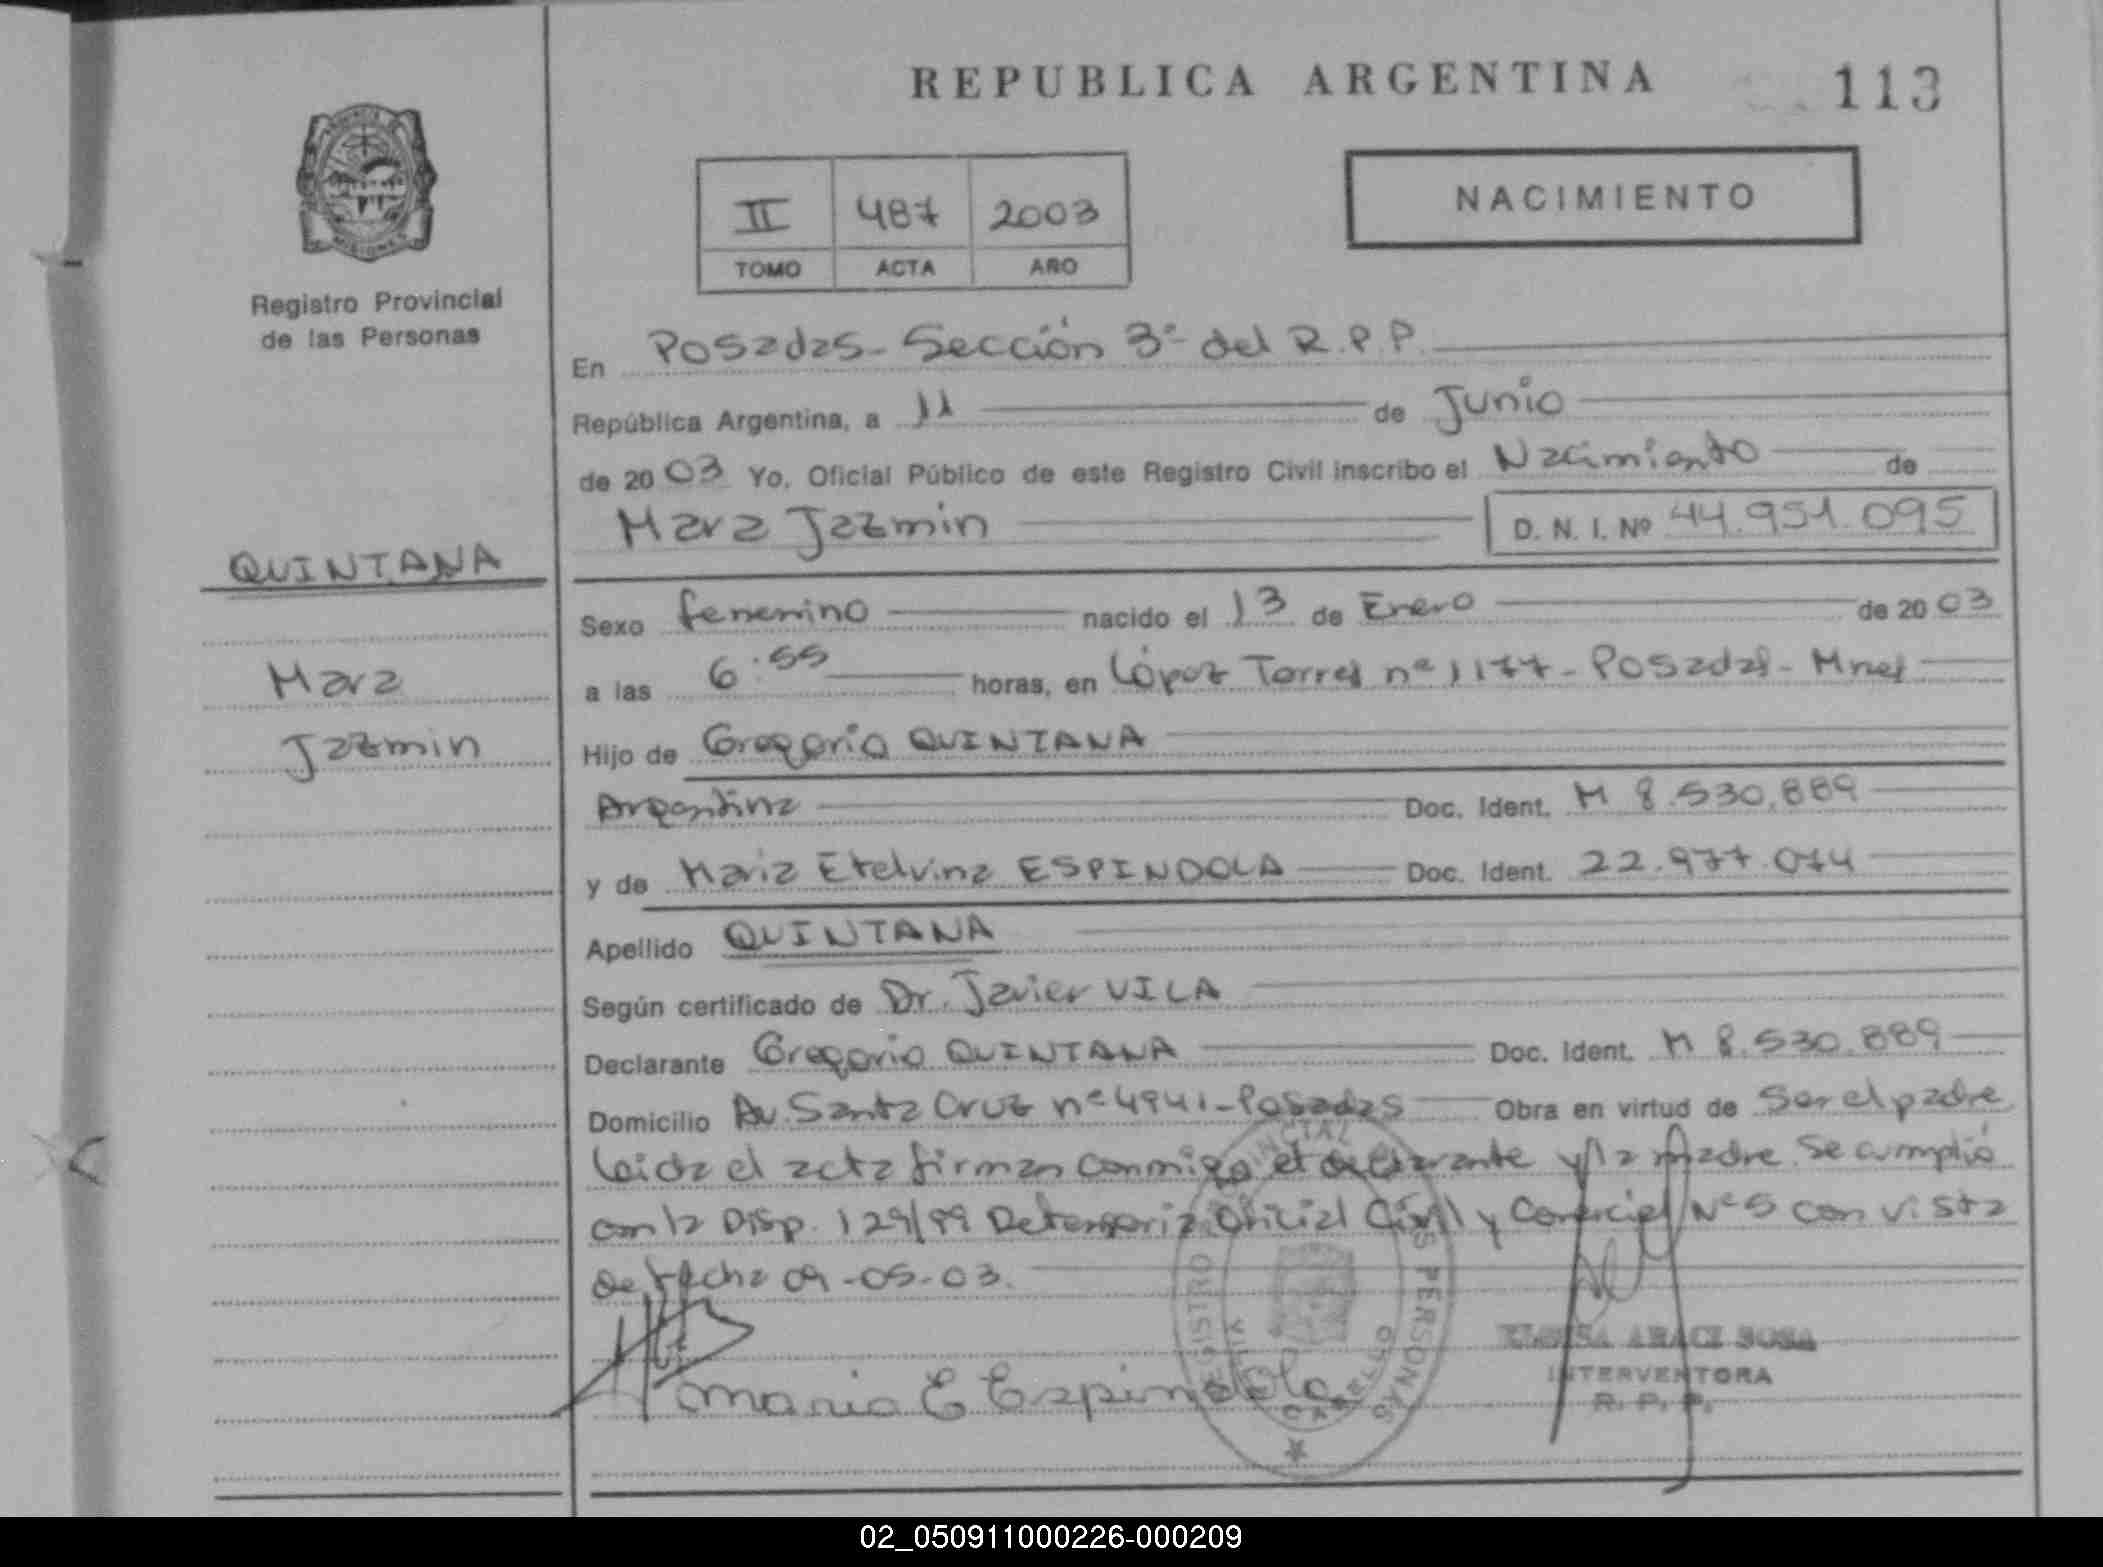 REPUBLICA ARGENTINA
113
NACIMIENTO
II 487 2003
TOMO ACTA AÑO
PROVINCIA DE
MISIONES
Registro Provincial
de las Personas
QUINTANA
Mara
Jazmin
En Posadas - Sección 3ª del R.P.P.
República Argentina, a 11 de Junio
de 2003 Yo, Oficial Público de este Registro Civil inscribo el Nacimiento de
Mara Jazmin D. N. I. Nº 44.951.095
Sexo femenino nacido el 13 de Enero de 2003
a las 6:55 horas, en López Torres nº 1177 - Posadas - Mnes
Hijo de Gregorio QUINTANA
Argentina Doc. Ident. M 8.530.889
y de Maria Etelvina ESPINDOLA Doc. Ident. 22.977.074
Apellido QUINTANA
Según certificado de Dr. Javier VILA
Declarante Gregorio QUINTANA Doc. Ident. M 8.530.889
Domicilio Av. Santa Cruz nº 4941 - Posadas Obra en virtud de Ser el padre
leida el acta firman conmigo el declarante y la madre. Se cumplió
con la Disp. 129/99 Defensoria Oficial Civil y Comercial Nº 5 con vista
de fecha 09-05-03.
Maria E Espindola
ARACI SOSA
INTERVENTORA
R. P. P.
REGISTRO PROVINCIAL DE LAS PERSONAS
02_050911000226-000209